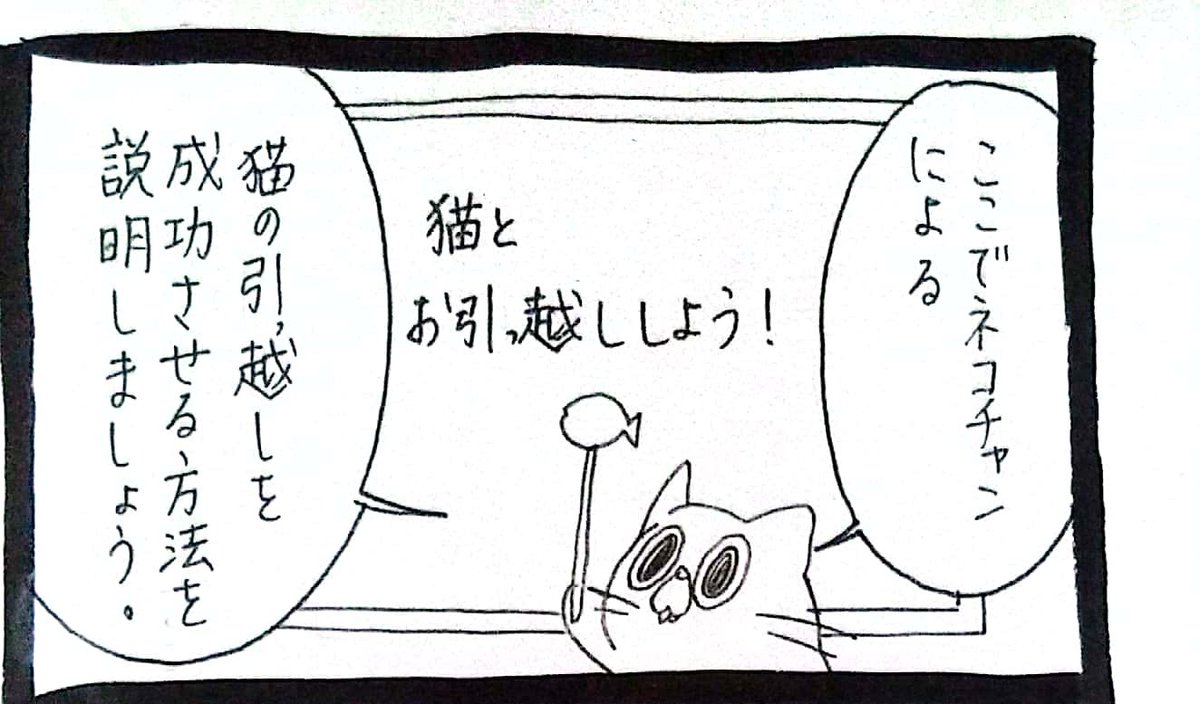 ここでネコチャン
による
猫と
お引っ越ししよう！
猫の引っ越しを
成功させる方法を
説明しましょう。